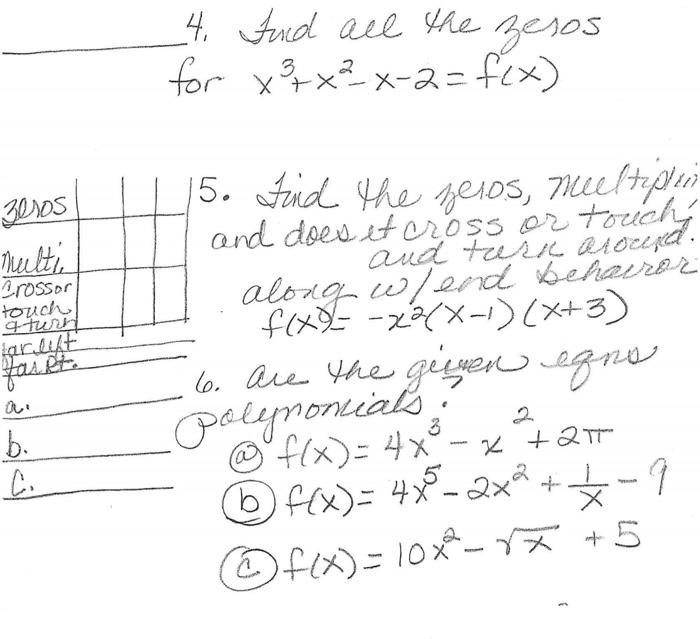 4. Find all the zeros
for x³+x²-x-2=f(x)
zeros
Multi.
Crossor
touch
&turn
far left
far Rt.
a.
b.
c.
5. Find the zeros,
and does it cross or touch,
and turn around.
along w/end behavior
f(x)= -x²(x-1)(x+3)
6. are the given eqns
polynomials?
ⓐ f(x)= 4x³ - x² + 2π
ⓑ f(x)= 4x⁵ - 2x² + 1/x - 9
ⓒ f(x)= 10x² - √x + 5